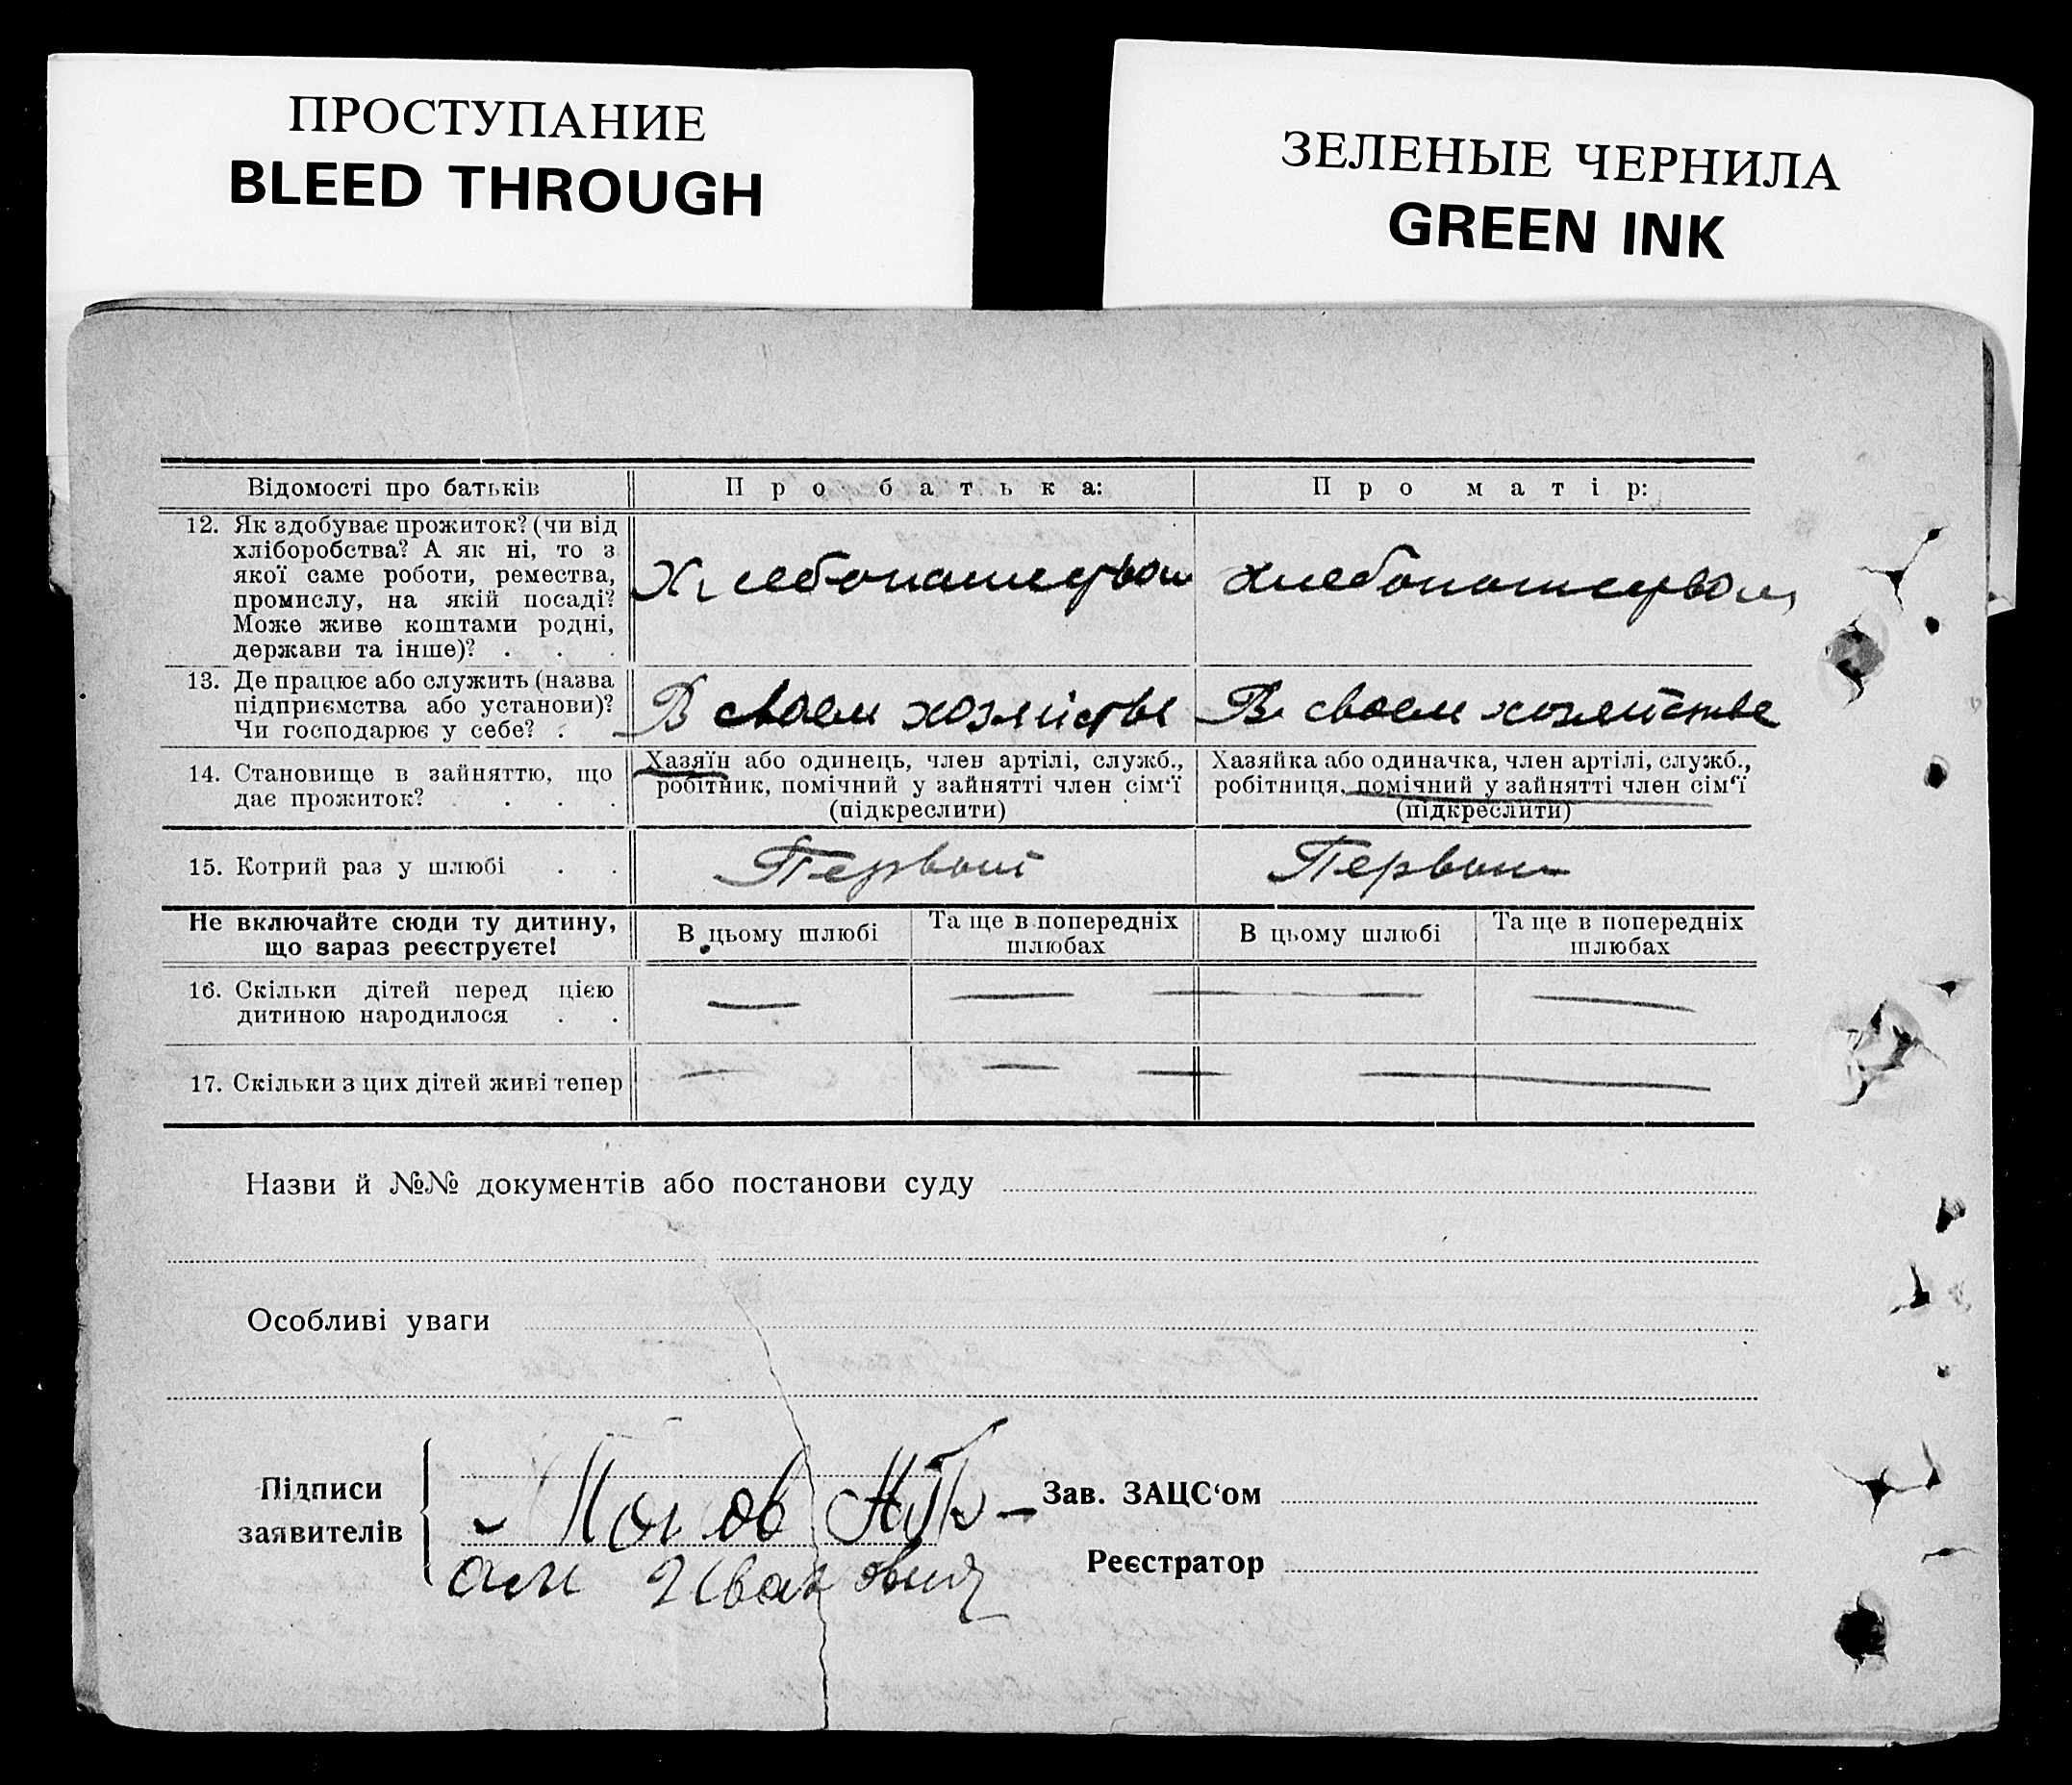 ПРОСТУПАНИЕ
BLEED THROUGH
ЗЕЛЕНЫЕ ЧЕРНИЛА
GREEN INK
Відомості про батьків
Про батька:
Про матір:
12. Як здобуває прожиток? (чи від
хліборобства? А як ні, то з
якої саме роботи, ремества,
промислу, на якій посаді?
Може живе коштами родні,
держави та інше)? . . .
Хлебопашеством
хлебопашеством
13. Де працює або служить (назва
підприємства або установи)?
Чи господарює у себе? .
В своем хозяйстве
В своем хозяйстве
14. Становище в зайняттю, що
дає прожиток? . . .
Хазяїн або одинець, член артілі, служб.,
робітник, помічний у зайнятті член сім‘ї
(підкреслити)
Хазяйка або одиначка, член артілі, служб.,
робітниця, помічний у зайнятті член сім‘ї
(підкреслити)
15. Котрий раз у шлюбі . .
Первый
Первый
Не включайте сюди ту дитину,
що зараз реєструєте!
В цьому шлюбі
Та ще в попередніх
шлюбах
В цьому шлюбі
Та ще в попередніх
шлюбах
16. Скільки дітей перед цією
дитиною народилося . .
— — — —
17. Скільки з цих дітей живі тепер
— — — —
Назви й №№ документів або постанови суду
Особливі уваги
Підписи
заявителів
Попов
Иванович
Зав. ЗАЦС‘ом
Реєстратор